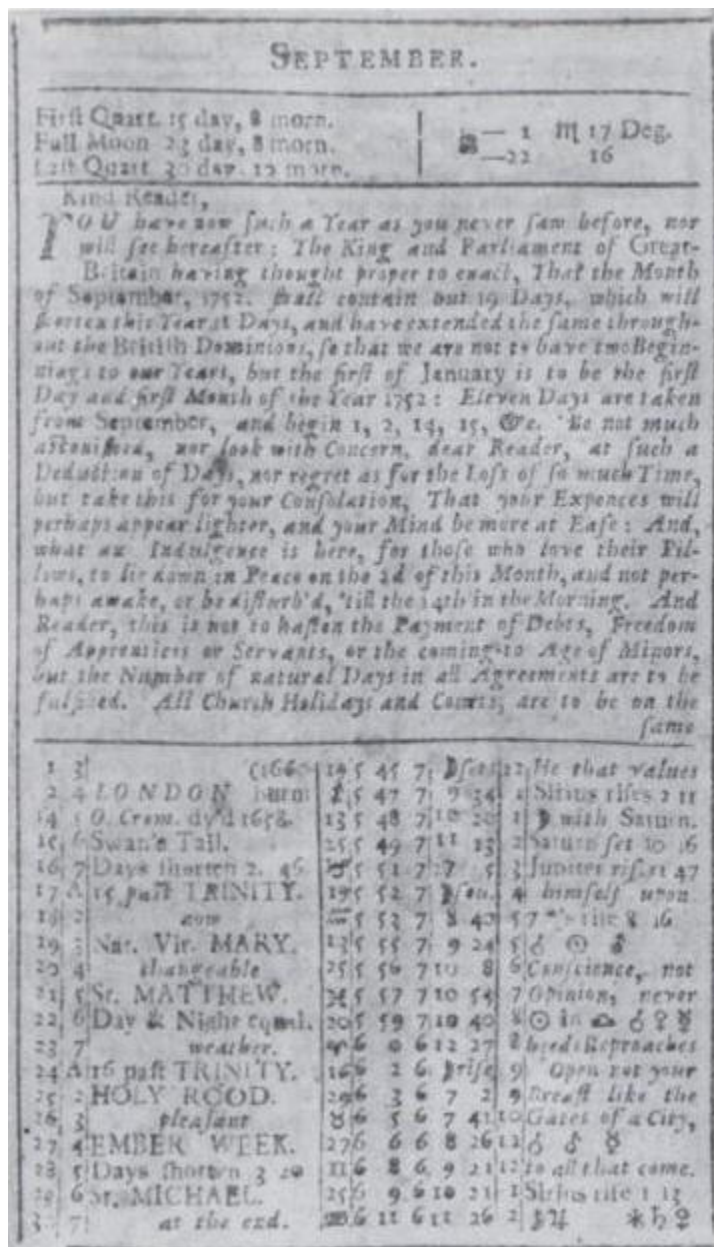 SEPTEMBER.
First Quart. 15 day, 8 morn.
Full Moon 23 day, 8 morn.
Last Quart. 30 day. 12 morn.
— 1 ♏ 17 Deg.
—22 16
Kind Reader,
YOU have now such a Year as you never saw before, nor
will see hereafter: The King and Parliament of Great-
Britain having thought proper to enact, That the Month
of September, 1752. shall contain but 19 Days, which will
shorten this Year 11 Days, and have extended the same through-
out the British Dominions, so that we are not to have two Begin-
nings to our Years, but the first of January is to be the first
Day and first Month of the Year 1752: Eleven Days are taken
from September, and begin 1, 2, 14, 15, &c. Be not much
astonished, nor look with Concern, dear Reader, at such a
Deduction of Days, nor regret as for the Loss of so much Time,
but take this for your Consolation, That your Expences will
perhaps appear lighter, and your Mind be more at Ease: And,
what an Indulgence is here, for those who love their Pil-
lows, to lie down in Peace on the 2d of this Month, and not per-
haps awake, or be disturb'd, 'till the 14th in the Morning. And
Reader, this is not to hasten the Payment of Debts, Freedom
of Apprentices or Servants, or the coming to Age of Minors,
but the Number of natural Days in all Agreements are to be
fulfilled. All Church Holidays and Courts, are to be on the
same
1 3 (1666 19 5 45 7 sets 12 He that values
2 4 LONDON burn 5 47 7 9 34 1 Sirius rises 2 11
14 5 O. Crom. dy'd 1658. 13 5 48 7 10 20 1 with Saturn.
15 6 Swan's Tail. 25 5 49 7 11 13 2 Saturn set 10 16
16 7 Days shorten 2. 46 5 51 7 3 Jupiter 47
17 A 15 past TRINITY. 19 5 52 7 4 himself upon
18 2 now 5 53 7 8 40 5 7 *'s rise 8 16
19 3 Nat. Vir. MARY. 13 5 55 7 9 24 5 ☌ ☉
20 4 changeable 25 5 56 7 10 8 6 Conscience, not
21 5 St. MATTHEW. ♓ 5 57 7 10 54 7 Opinion, never
22 6 Day & Night equal. 20 5 59 7 10 40 8 ☉ in ♎ ☌ ♀ ☿
23 7 weather. ♈ 6 0 6 12 27 8 heeds Reproaches
24 A 16 past TRINITY. 16 6 2 6 rise 9 Open not your
25 2 HOLY ROOD. 29 6 3 6 7 2 9 Breast like the
26 3 pleasant ♉ 6 5 6 7 41 10 Gates of a City,
27 4 EMBER WEEK. 27 6 6 6 8 26 ☌ ♂ ☿
28 5 Days shorten 3 20 11 6 8 6 9 21 12 to all that come.
29 6 St. MICHAEL. 25 6 9 6 10 21 1 Sirius rise 1 13
7 at the end. 6 11 6 11 26 2 ♃ * ♄ ♀